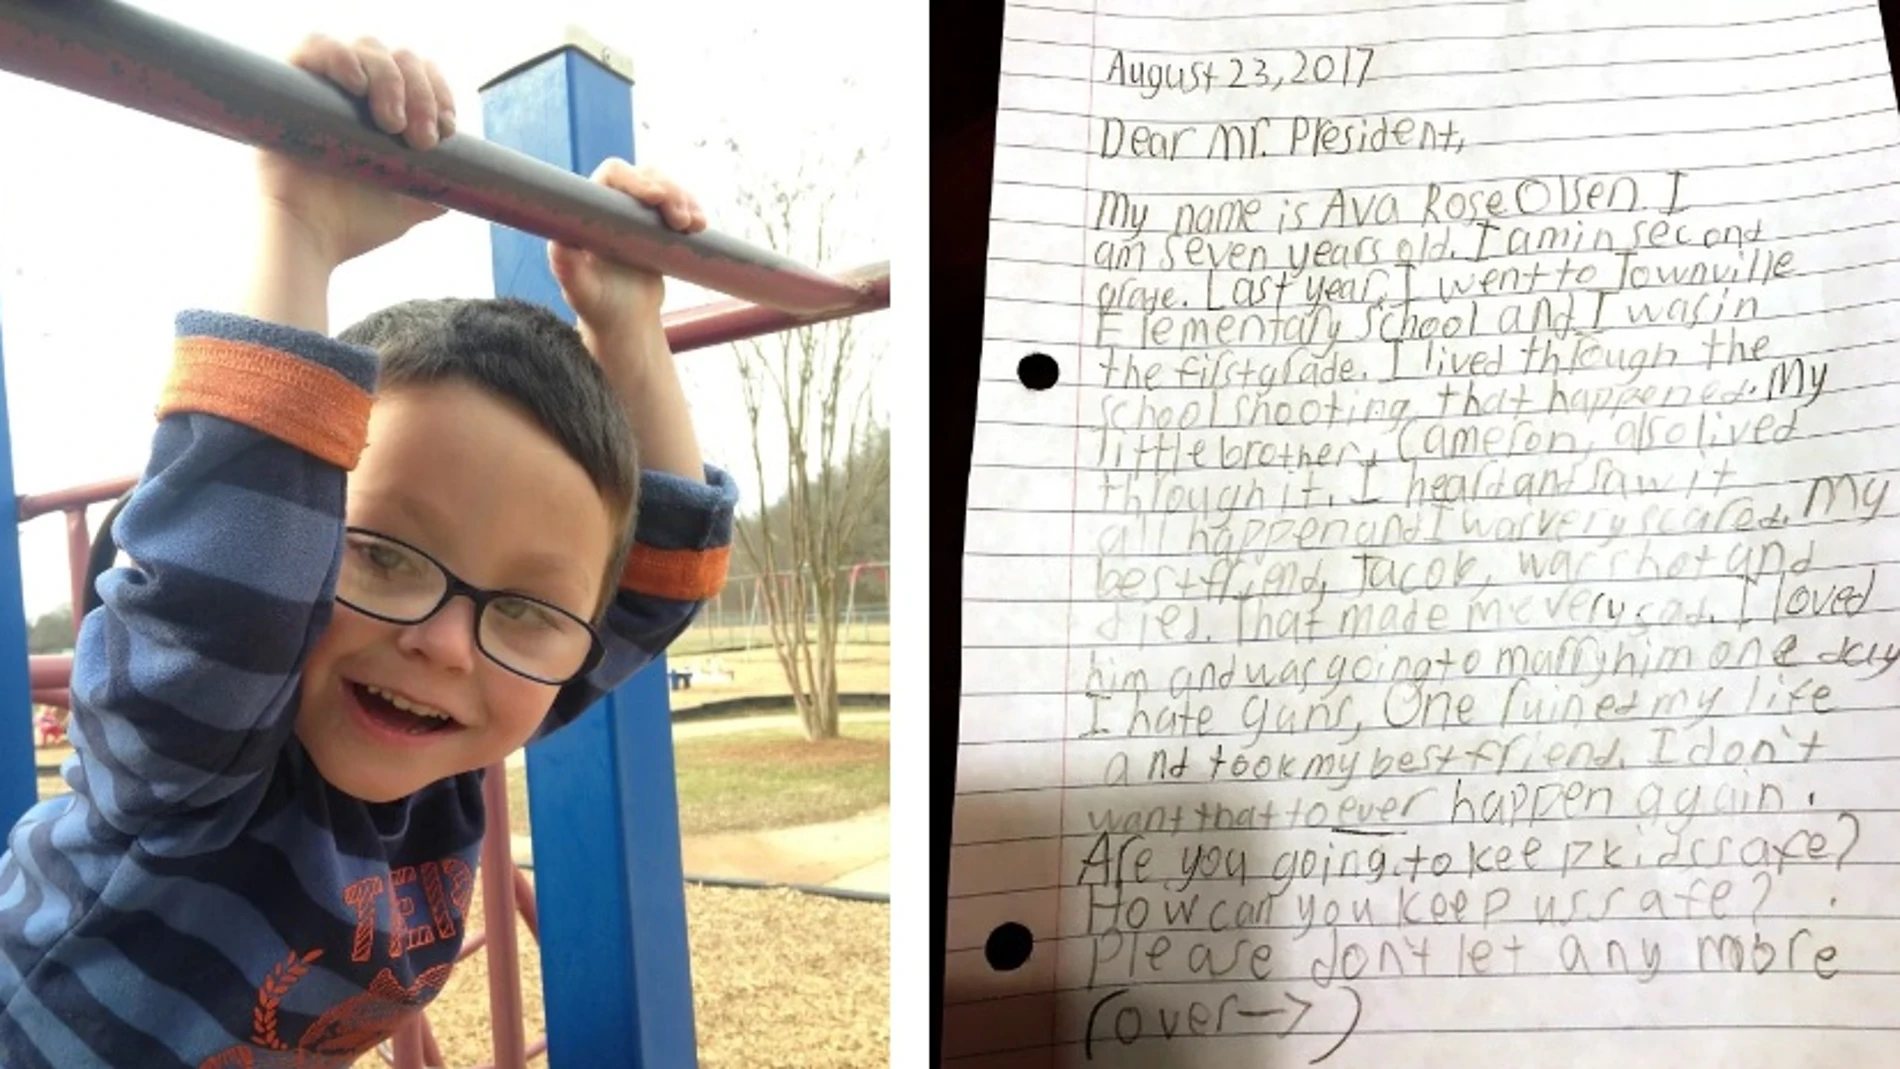 TEP
August 23, 2017
Dear Mr. President,
My name is Ava Rose Olsen. I
am seven years old. I am in second
grade. Last year, I went to Townville
Elementary School and I was in
the first grade. I lived through the
school shooting that happened. My
little brother, Cameron, also lived
through it. I heard and saw it
all happen and I was very scared. My
best friend, Jacob, was shot and
died. That made me very sad. I loved
him and was going to marry him one day
I hate guns, One ruined my life
and took my best friend. I don't
want that to ever happen again.
Are you going to keep kids safe?
How can you keep us safe?
Please don't let any more
(over→)